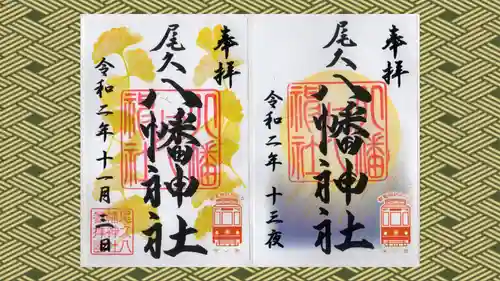 奉拝
尾久
八幡神社
八幡
神社
令和二年十一月三日
奉拝
尾久
八幡神社
八幡
神社
令和二年十三夜